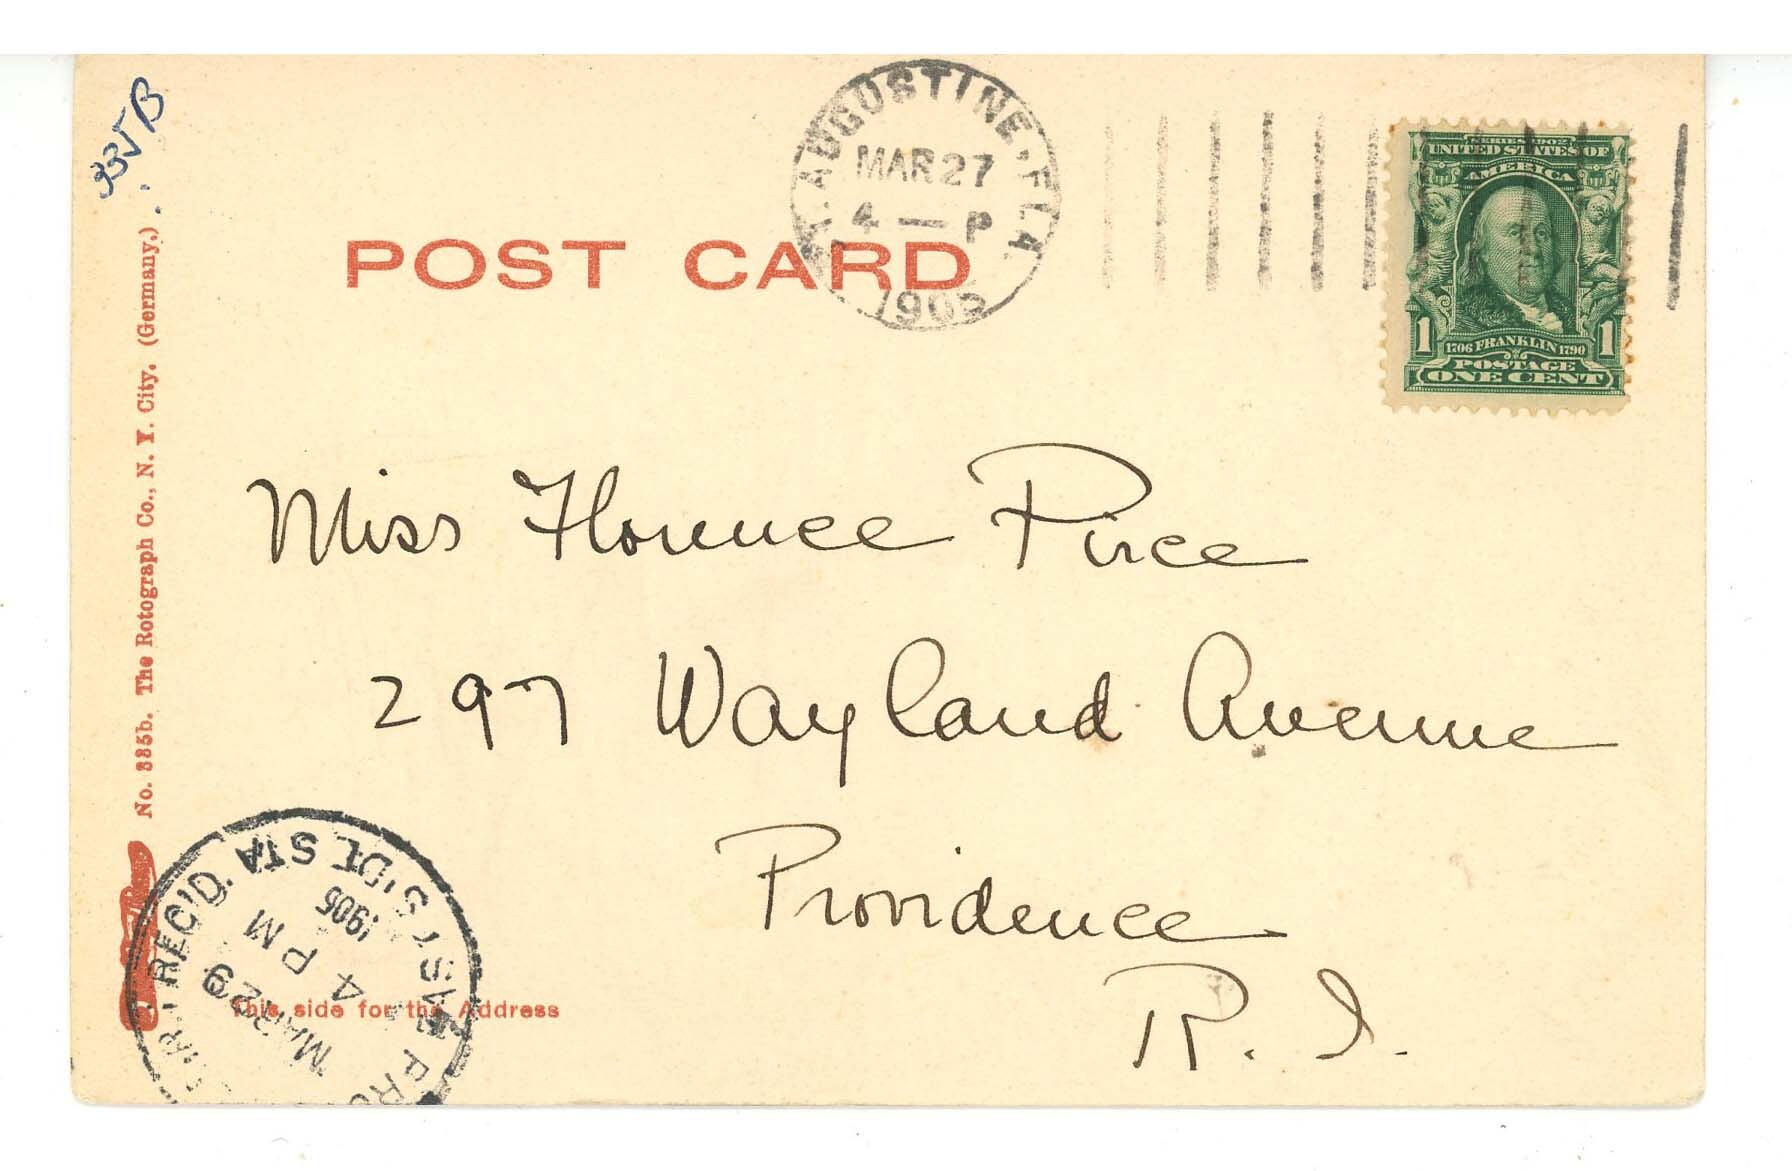 335 B
ST. AUGUSTINE, FLA.
MAR 27
4 — P
1905
SERIES 1902
UNITED STATES OF
AMERICA
1 1
1706 FRANKLIN 1790
POSTAGE
ONE CENT
POST CARD
No. 335b. The Rotograph Co., N. Y. City. (Germany.)
Miss Florence Pirce
297 Wayland Avenue
Providence
R. I.
REC'D.
EAST SIDE STA
MAR 29
4 PM
1905
This side for the Address